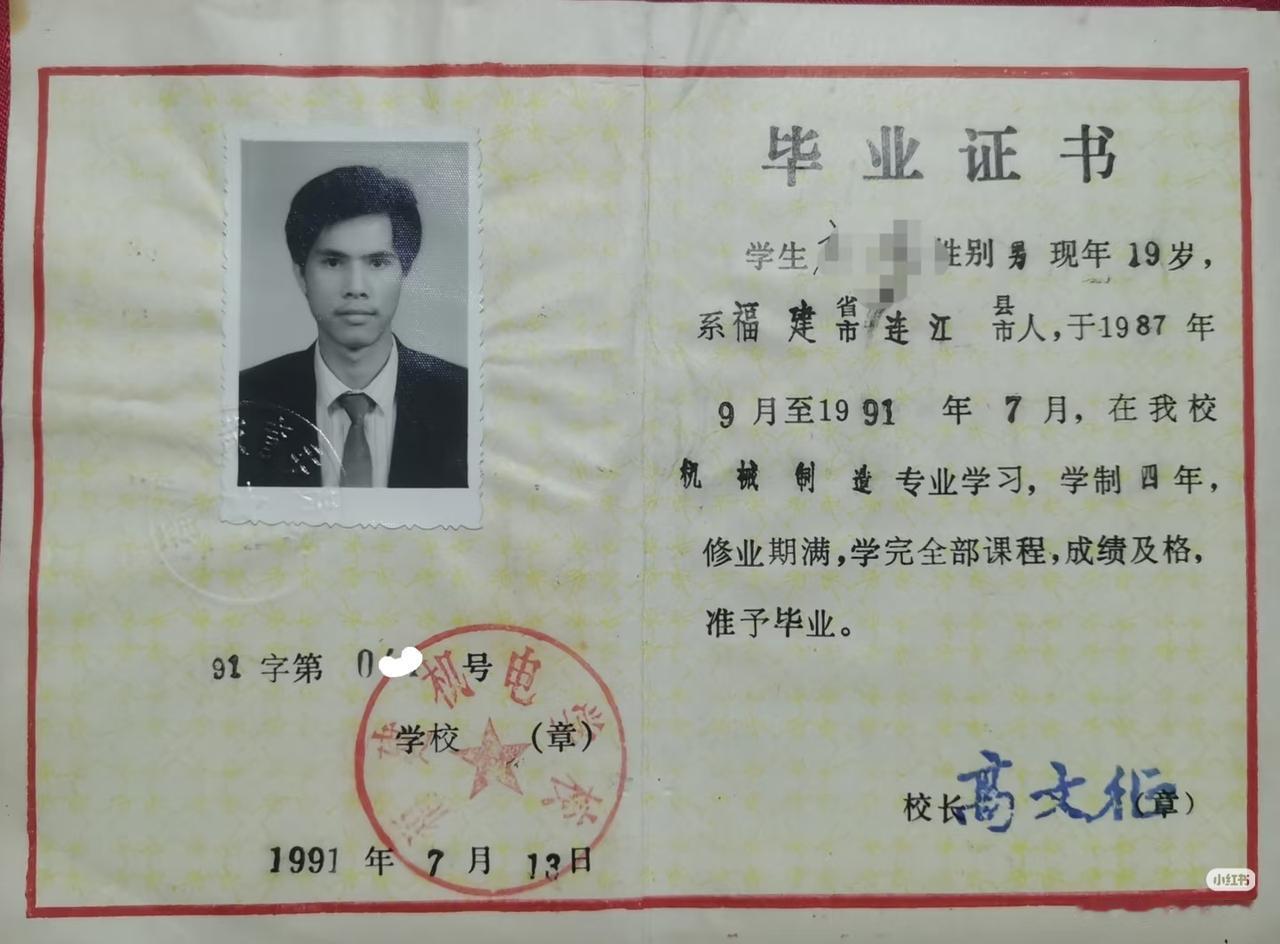 毕业证书
学生 性别男 现年19岁,
系福建省市连江县市人,于1987年
9月至1991年7月,在我校
机械制造专业学习,学制四年,
修业期满,学完全部课程,成绩及格,
准予毕业。
校长高文(章)
91字第0 号
福建机电学校
学校(章)
1991年7月13日
小红书